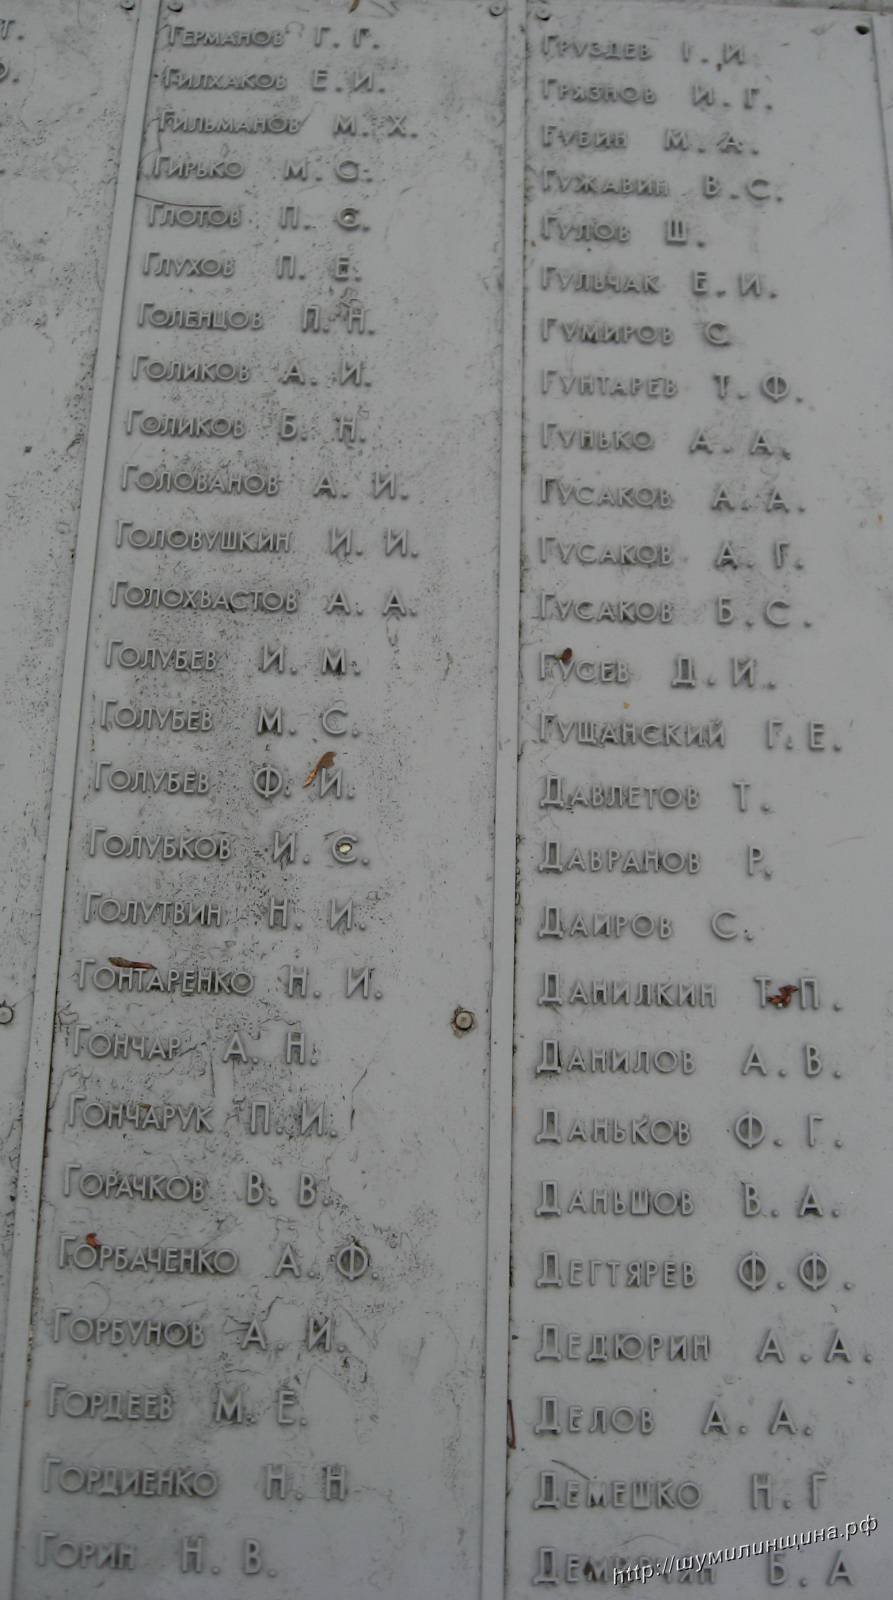 Германов Г. Г.
Гилхаков Е. И.
Гильманов М. Х.
Гирько М. С.
Глотов П. С.
Глухов П. Е.
Голенцов П. Н.
Голиков А. И.
Голиков Б. Н.
Голованов А. И.
Головушкин И. И.
Голохвастов А. А.
Голубев И. М.
Голубев М. С.
Голубев Ф. И.
Голубков И. С.
Голутвин Н. И.
Гонтаренко Н. И.
Гончар А. Н.
Гончарук П. И.
Горачков В. В.
Горбаченко А. Ф.
Горбунов А. И.
Гордеев М. Е.
Гордиенко Н. Н
Горин Н. В.
Груздев Г. И
Грязнов И. Г.
Губин М. А.
Гужавин В. С.
Гулов Ш.
Гульчак Е. И.
Гумиров С
Гунтарев Т. Ф.
Гунько А. А.
Гусаков А. А.
Гусаков А. Г.
Гусаков Б. С.
Гусев Д. И.
Гущанский Г. Е.
Давлетов Т.
Давранов Р.
Даиров С.
Данилкин Т. П.
Данилов А. В.
Даньков Ф. Г.
Даньшов В. А.
Дегтярев Ф. Ф.
Дедюрин А. А.
Делов А. А.
Демешко Н. Г
Б. А
http://шумилинщина.рф